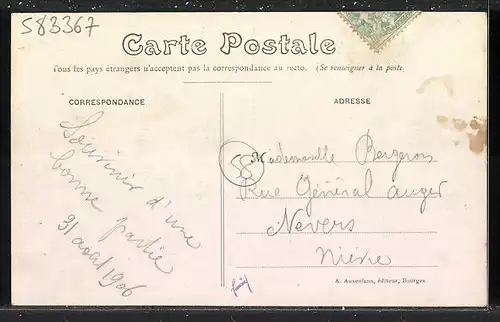 583367
Carte Postale
Tous les pays étrangers n'acceptent pas la correspondance au recto. (Se renseigner à la poste
CORRESPONDANCE
ADRESSE
Souvenir d'une
bonne partie
31 août 1906
58
Mademoiselle Bergeron
Rue Général Auger
Nevers
Nièvre
A. Auxenfans, éditeur, Bourges